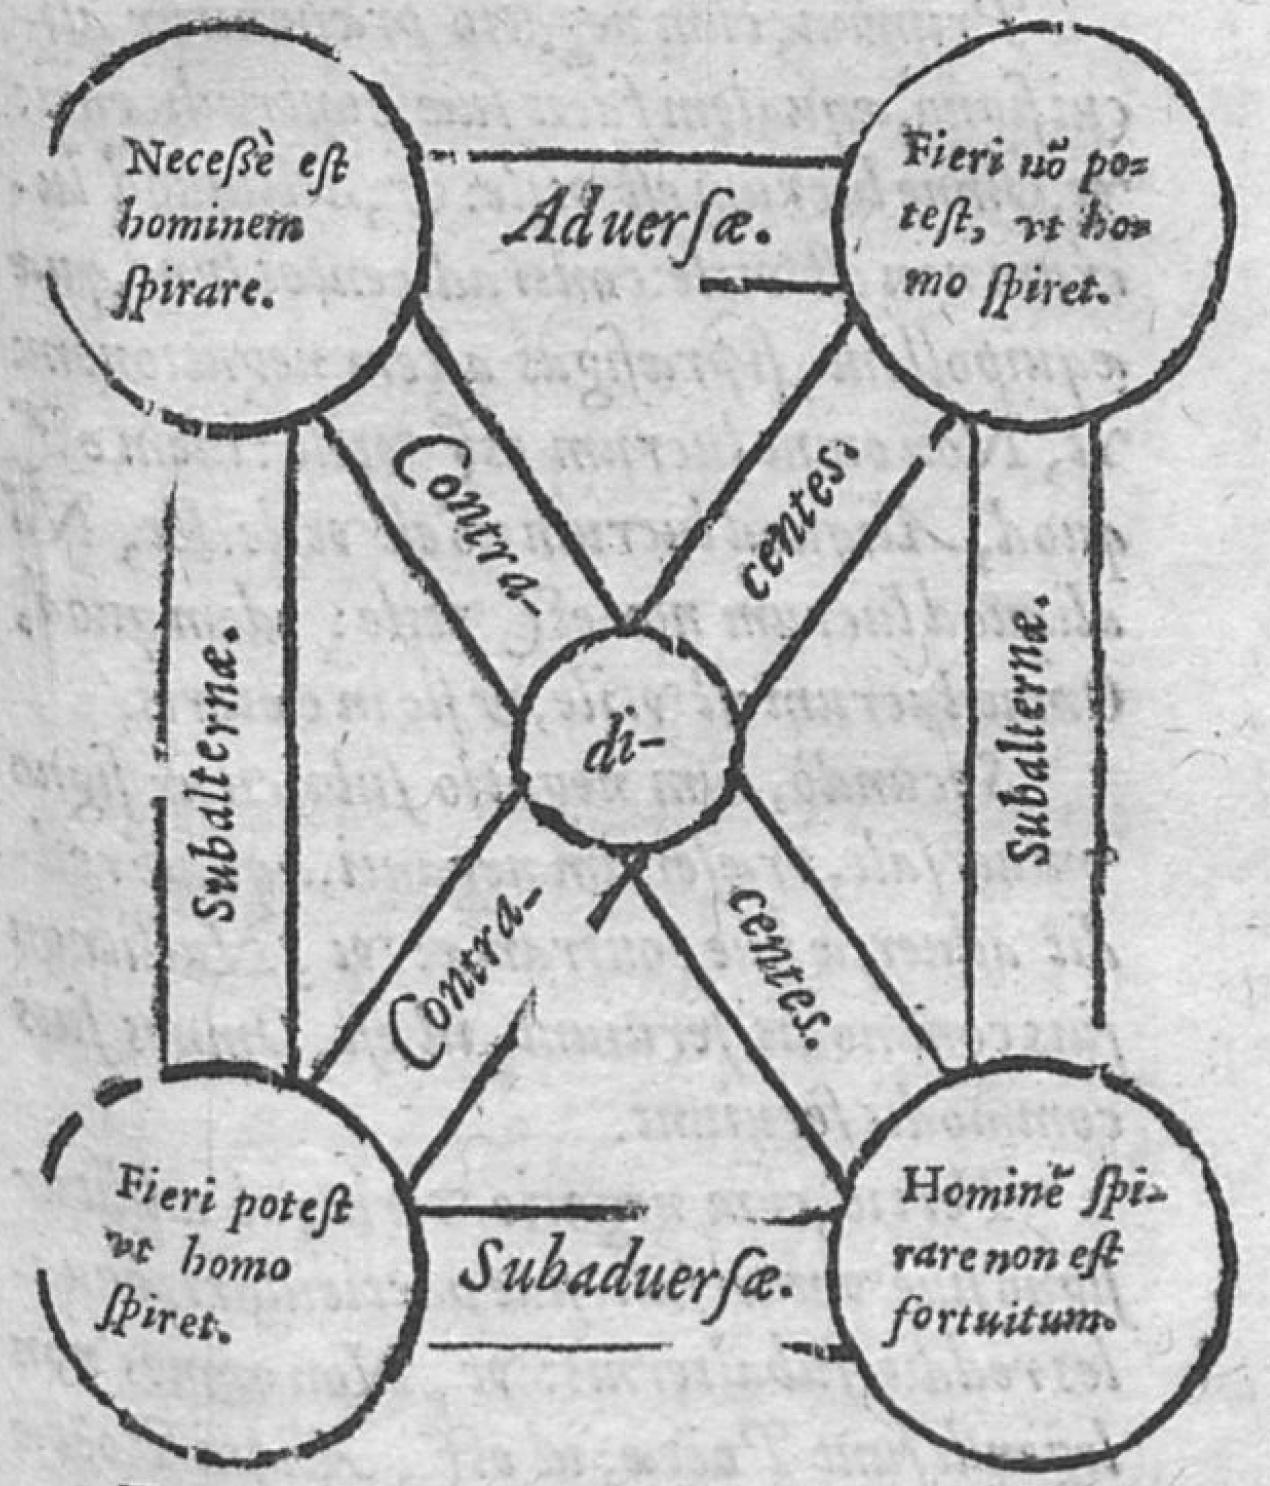 Neceſsè eſt
hominem
ſpirare.
Aduerſæ.
Fieri nõ po-
teſt, vt ho-
mo ſpiret.
Contra-
centes.
di-
Subalternæ.
Subalternæ.
Contra-
centes.
Fieri poteſt
vt homo
ſpiret.
Subaduerſæ.
Hominẽ ſpi-
rare non eſt
fortuitum.